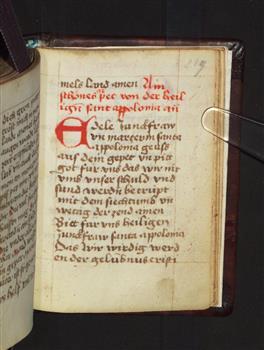 219
mels land amen Ain
schones pet von der heil
ign sant appolonia an
Edele Junckfraw
vn martrerin santa
appolonia
auß dem gepet vn pit
got für vns das wir nit
vmb vnser schuld vnd
sund werdn betrupt
mit dem siechtumb vn
wetag der zend amen
Bitt für vns heiligen
Junckfraw santa appolonia
Das wir wirdig werd
en der gelubnus cristi